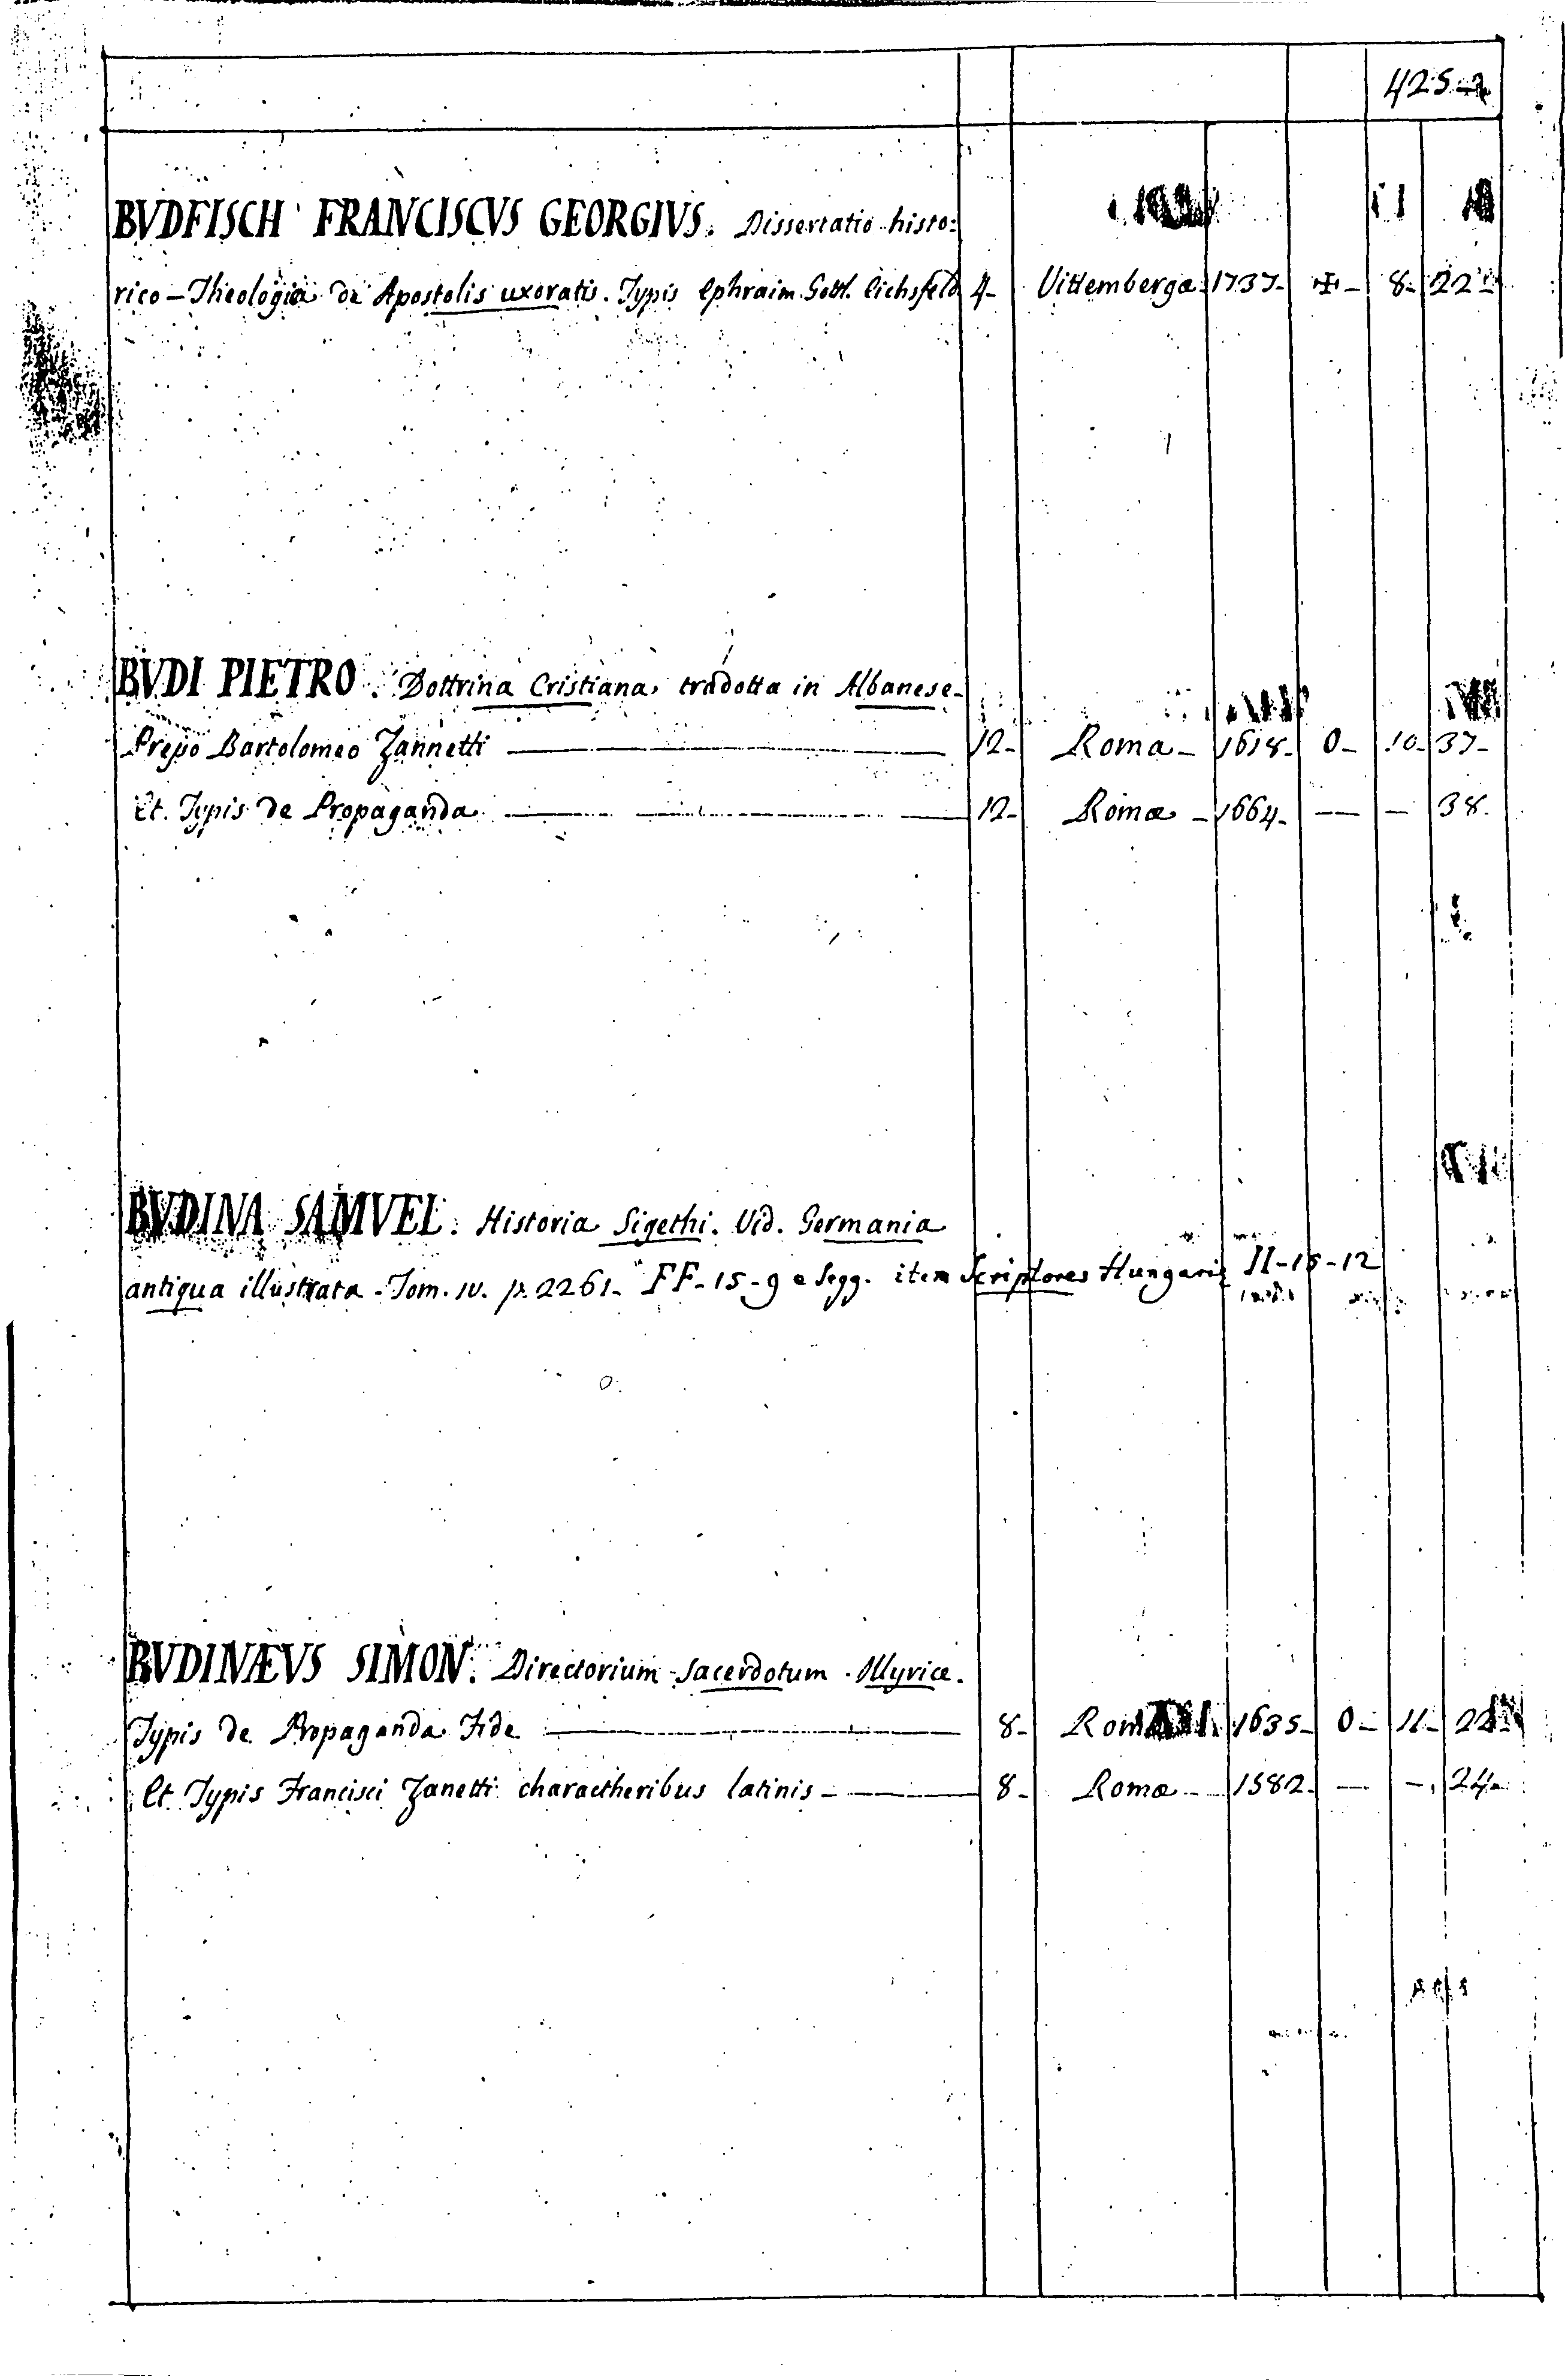 425
BVDFISCH FRANCISCVS GEORGIVS. Dissertatio histo:
rico-Theologia de Apostolis uxoratis. Typis Ephraim. Gottl. Eichsfeld 4- Vittembergæ 1737- ✠- 8- 22
BVDI PIETRO. Dottrina Cristiana, tradotta in Albanese-
Prepo Bartolomeo Zannetti 12- Roma- 1618- 0- 10- 37-
Et. Typis de Propaganda 12- Romæ- 1664- — — 38.
BVDINA SAMVEL. Historia Sigethi. Vid. Germania
antiqua illustrata-Tom. IV. p. 2261- FF-15-9 e segg. item Scriptores Hungariæ II-15-12
BVDINÆVS SIMON. Directorium Sacerdotum. Illyrice.
Typis de Propaganda Fide 8- Romæ 1635- 0- 11- 22
Et Typis Francisci Zanetti charactheribus latinis- 8- Romæ- 1582- — -, 24-